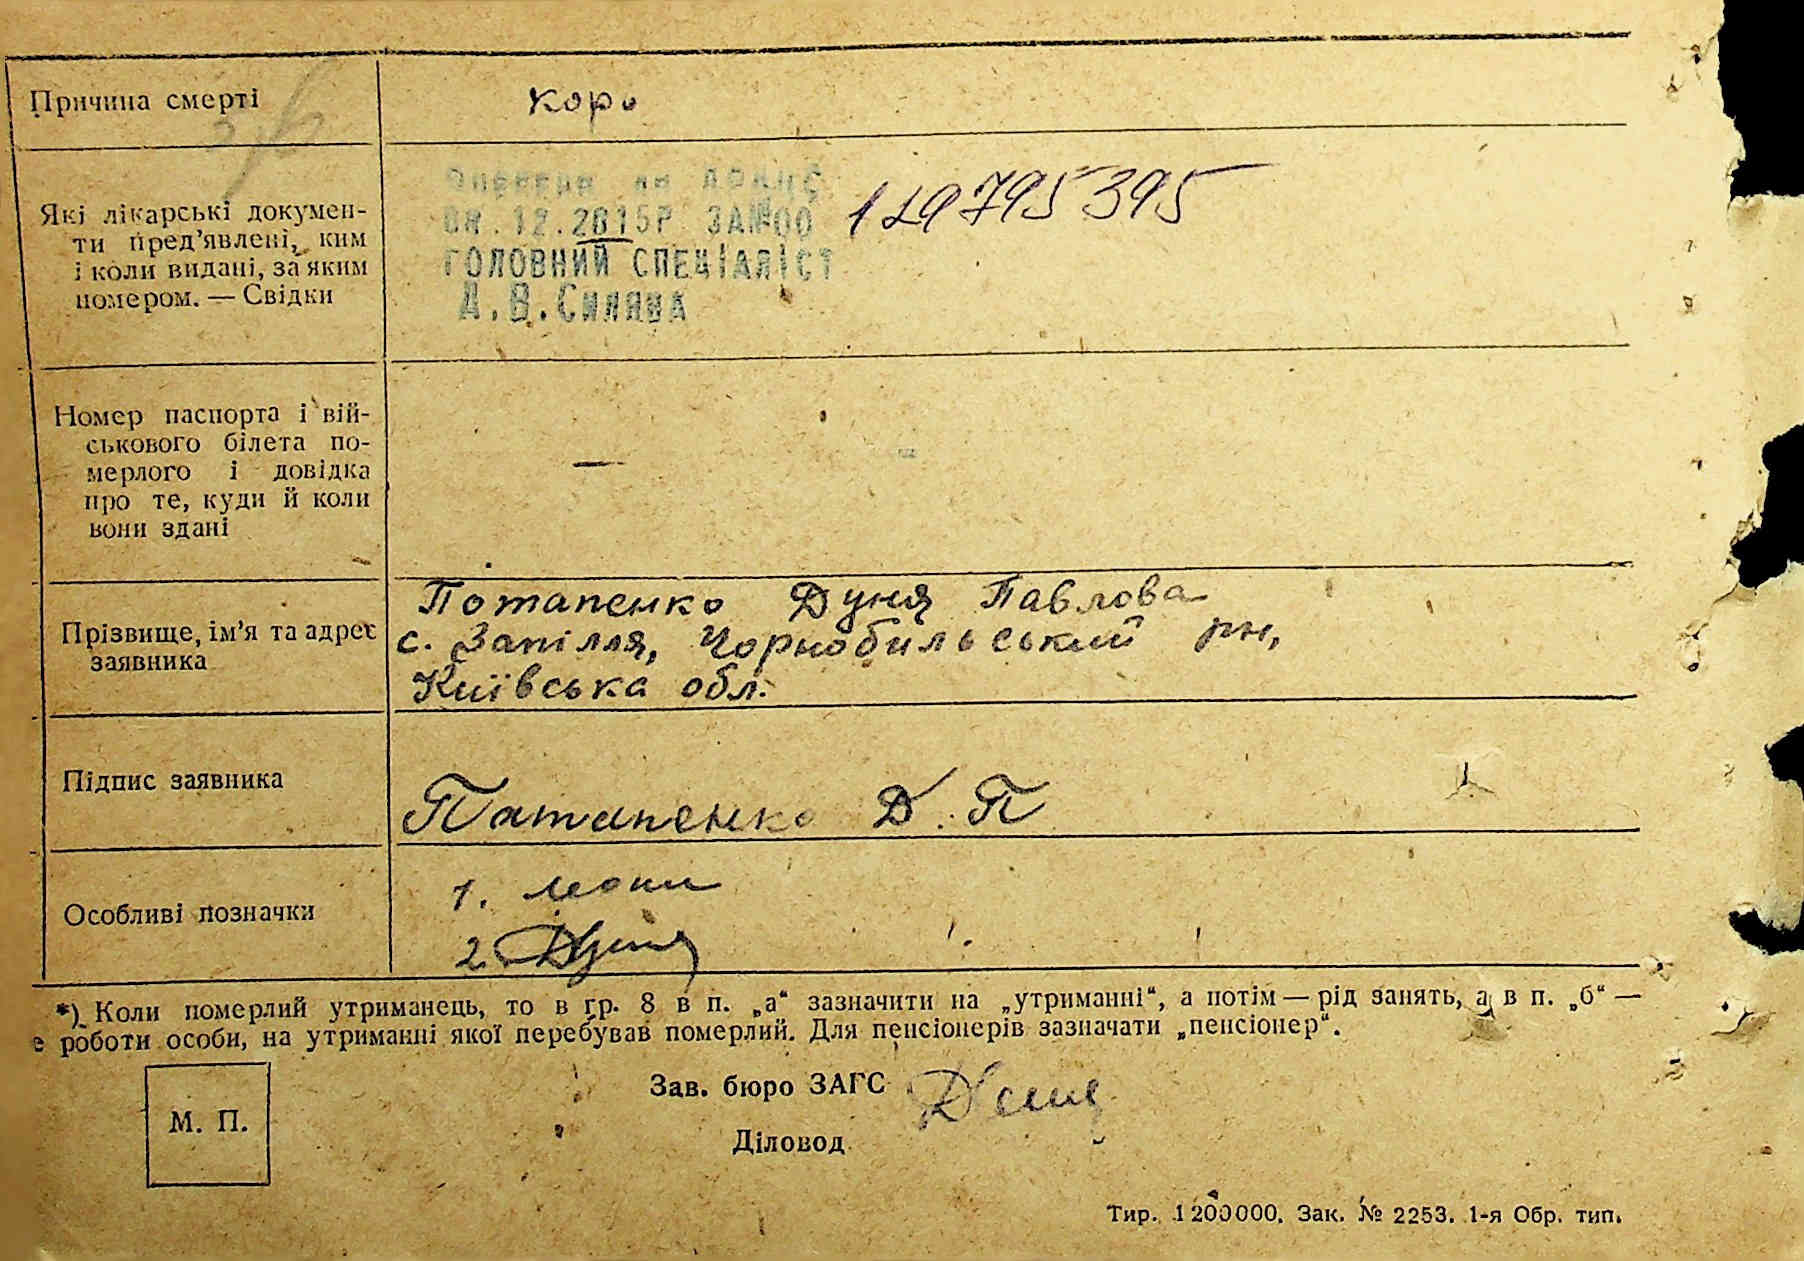 Причина смерті
Кору
Які лікарські докумен-
ти пред'явлені, ким
і коли видані, за яким
номером. — Свідки
12.2015Р ЗА№00 129795395
ГОЛОВНИЙ СПЕЦІАЛІСТ
А.В.
Номер паспорта і вій-
ськового білета по-
мерлого і довідка
про те, куди й коли
вони здані
—
Прізвище, ім'я та адрес
заявника
Потапенко Дуня Павлова
с. Запілля, Чорнобильський рн,
Київська обл.
Підпис заявника
Патапенко Д. П
Особливі позначки
1.
2.
*) Коли померлий утриманець, то в гр. 8 в п. „а“ зазначити на „утриманні“, а потім — рід занять, а в п. „б“ —
е роботи особи, на утриманні якої перебував померлий. Для пенсіонерів зазначати „пенсіонер“.
М. П.
Зав. бюро ЗАГС
Діловод
Тир. 1200000. Зак. № 2253. 1-я Обр. тип.